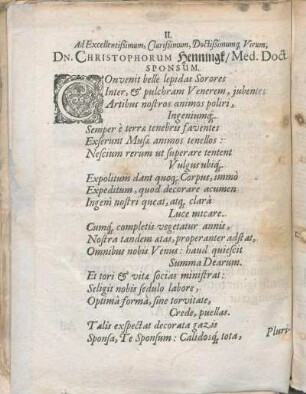 II.
Ad Excellentißimum, Clarißimum, Doctißimumq; Virum,
DN. CHRISTOPHORUM Henningk/ Med. Doct
SPONSUM.
COnvenit belle lepidas Sorores
Inter, & pulchram Venerem, jubentes
Artibus nostros animos poliri,
Ingeniumq;.
Semper è terra tenebris faventes
Exserunt Musæ animos tenellos:
Nescium rerum ut superare tentent
Vulgus ubiq;.
Expolitum dant quoq; Corpus, immò
Expeditum, quod decorare acumen
Ingenî nostri queat, atq; clarâ
Luce micare.
Cumq; completis vegetatur annis,
Nostra tandem ætas, properanter adstat,
Omnibus nobis Venus: haud quiescit
Summa Dearum.
Et tori & vitæ socias ministrat:
Seligit nobis sedulo labore,
Optimâ formâ, sine torvitate,
Crede, puellas.
Talis exspectat decorata gazis
Sponsa, Te Sponsum: Calidosq; tota,
Pluri-